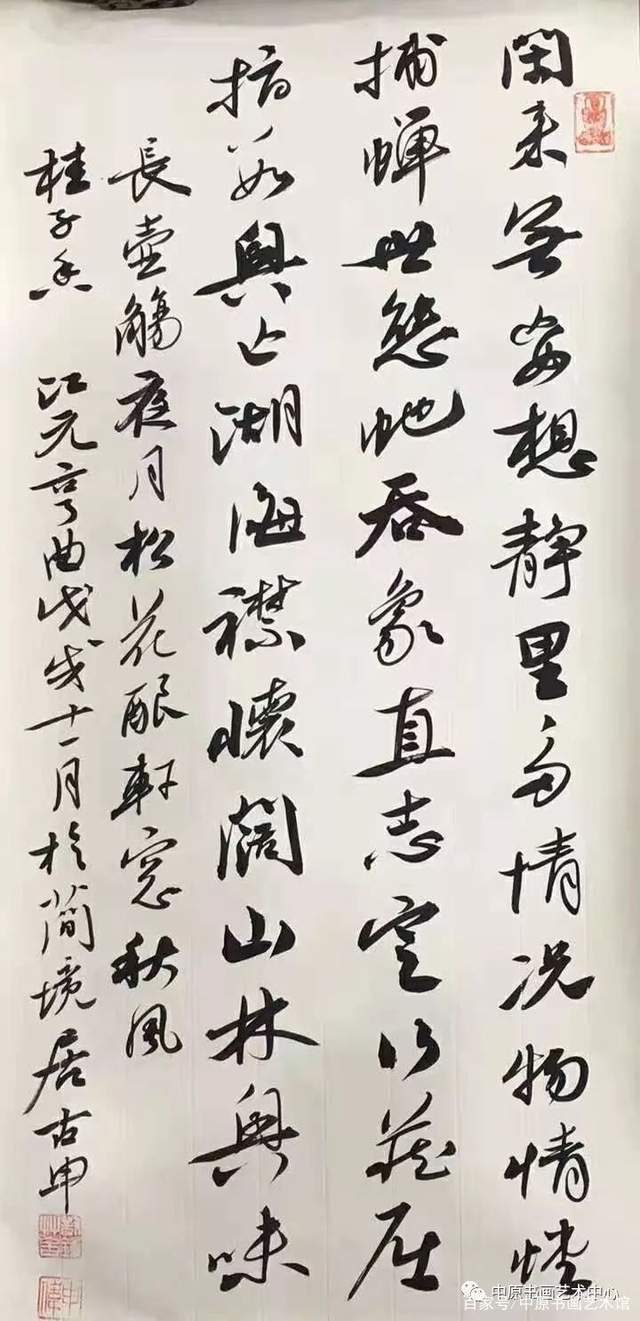 閑来無妄想静里多情况物情螳
捕蝉世態虵吞象直志定行藏屈
指数興亡湖海襟懷闊山林興味
長壺觴夜月松花釀軒窓秋風
桂子香 汪元亨曲戊戌十一月於簡境居古申
中原书画艺术中心
百家号/中原书画艺术馆